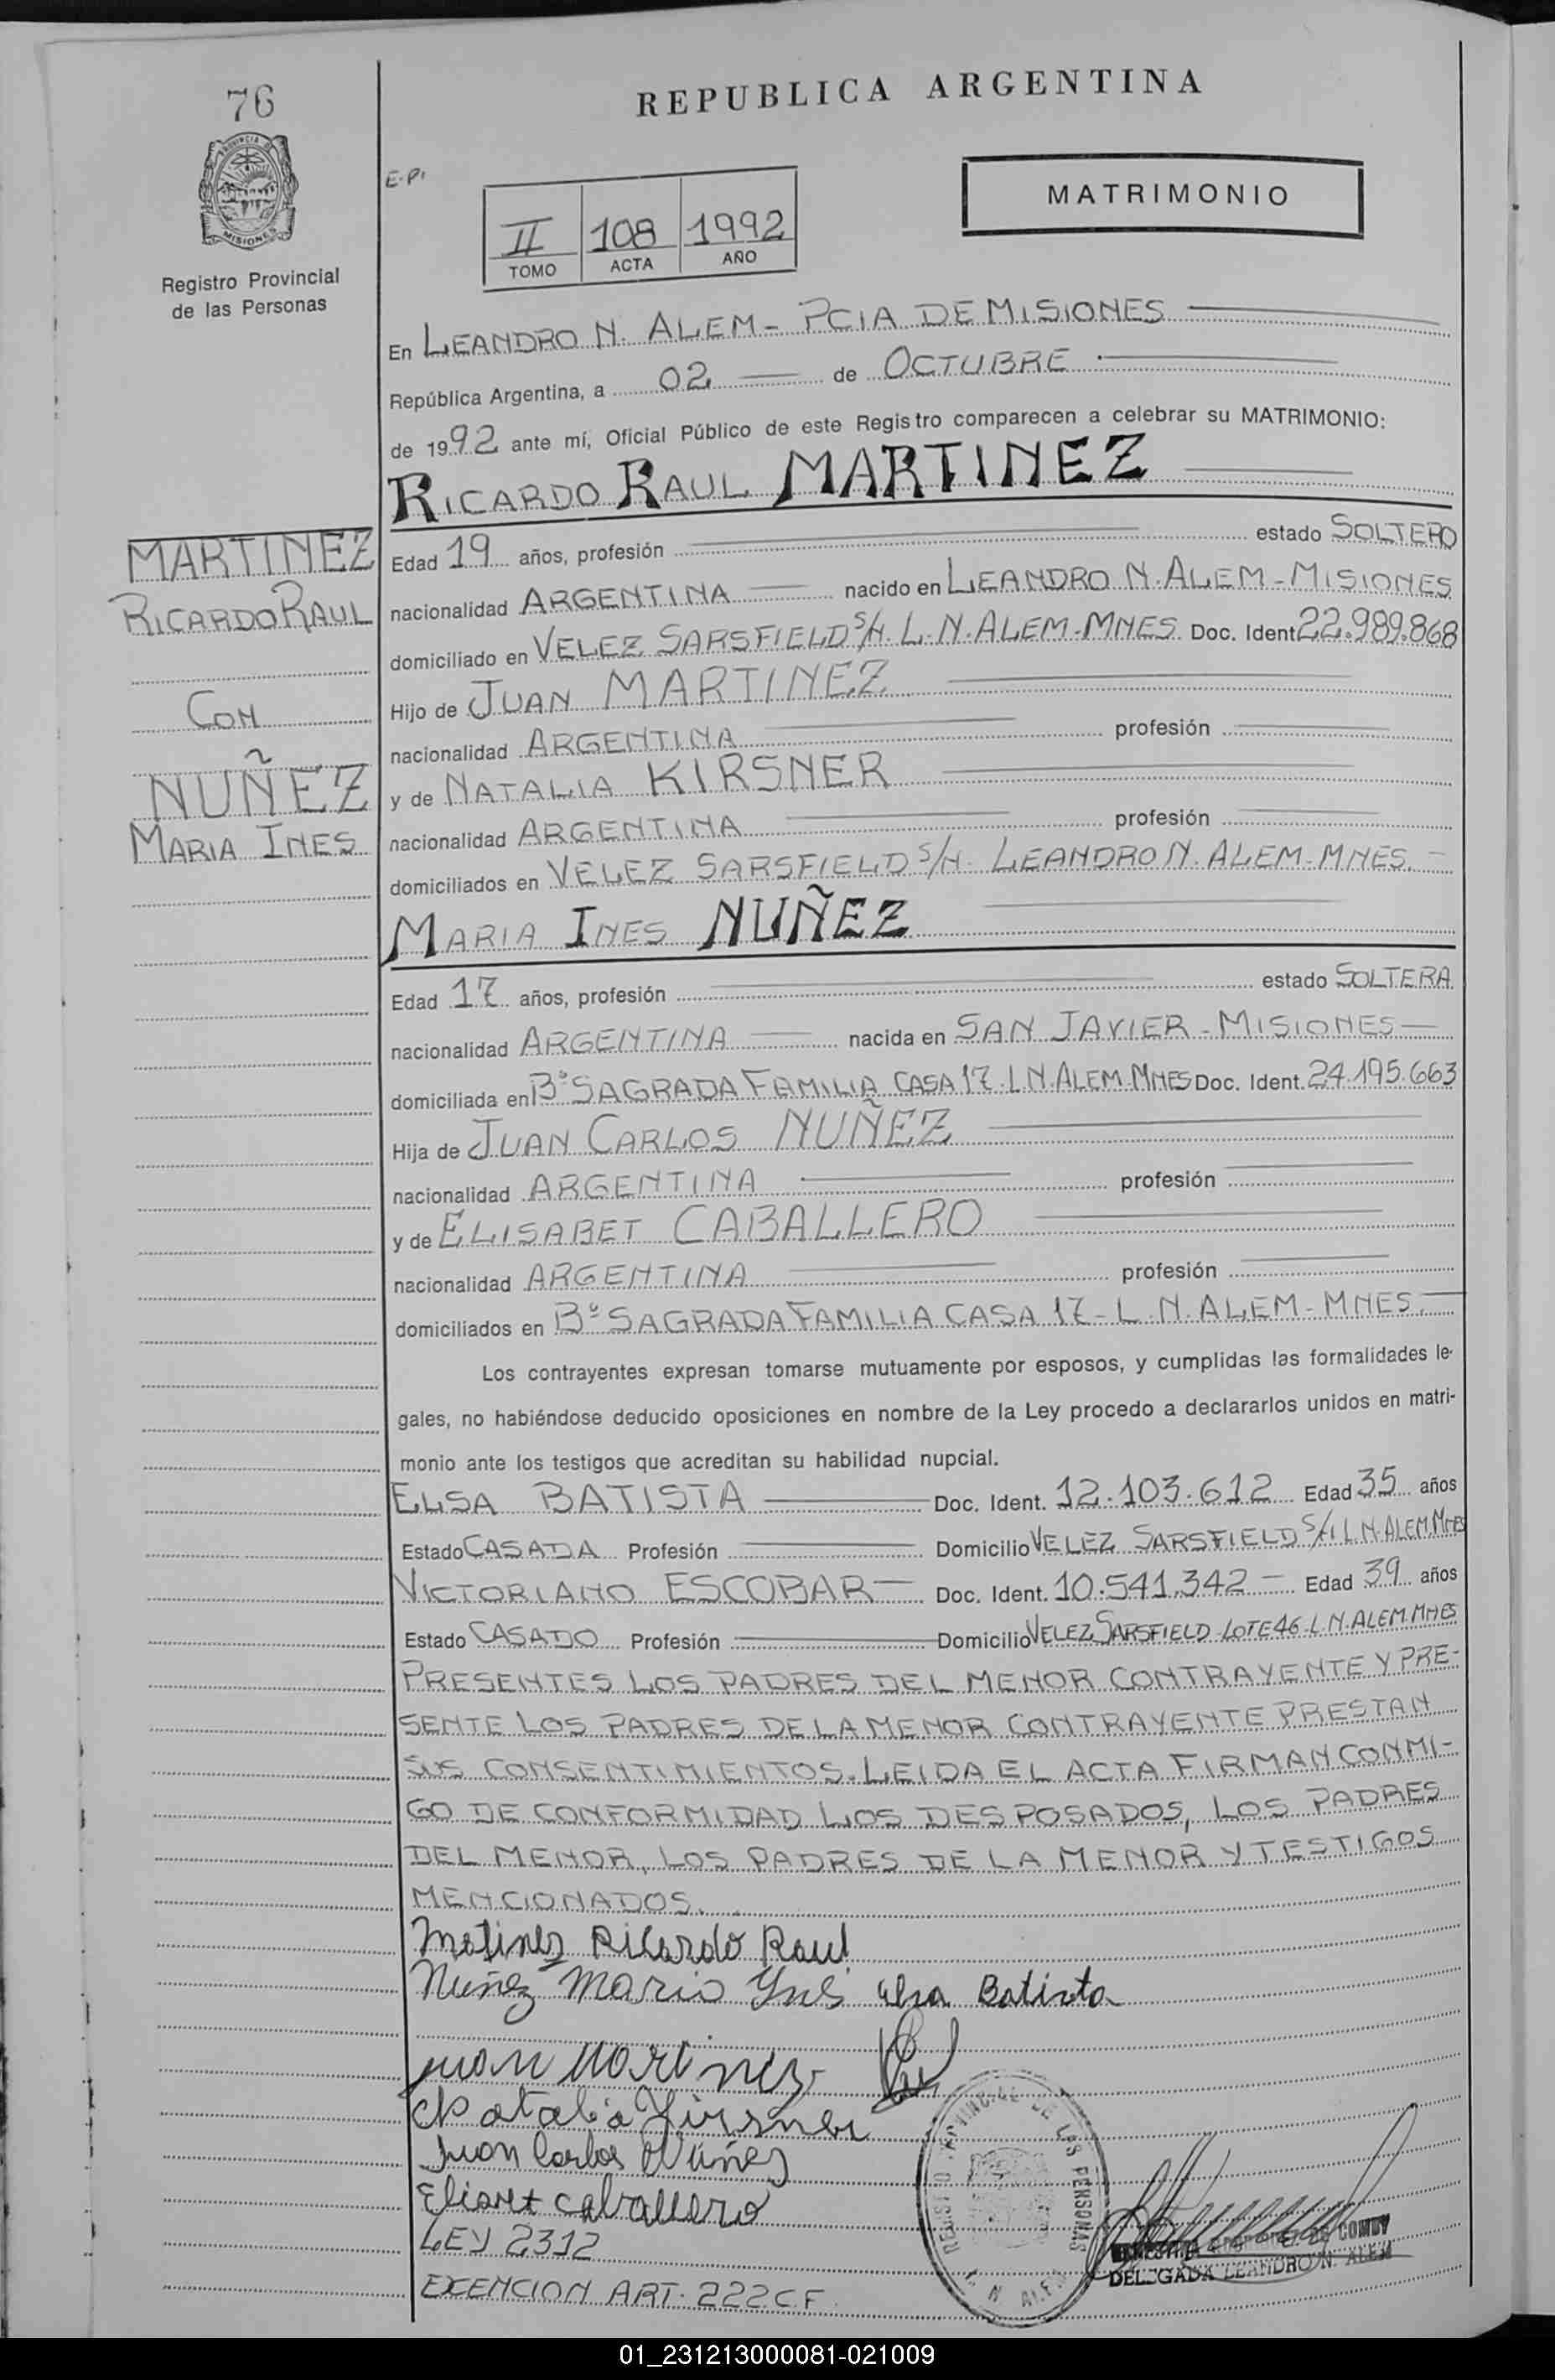 76
REPUBLICA ARGENTINA
PROVINCIA DE
MISIONES
E.P.
MATRIMONIO
II 108 1992
TOMO ACTA AÑO
Registro Provincial
de las Personas
En LEANDRO N. ALEM - PCIA DE MISIONES
República Argentina, a 02 de OCTUBRE
de 1992 ante mí, Oficial Público de este Registro comparecen a celebrar su MATRIMONIO:
RICARDO RAUL MARTINEZ
MARTINEZ
RICARDO RAUL
CON
NUÑEZ
MARIA INES
Edad 19 años, profesión estado SOLTERO
nacionalidad ARGENTINA nacido en LEANDRO N. ALEM - MISIONES
domiciliado en VELEZ SARSFIELD S/N. L.N. ALEM - MNES. Doc. Ident. 22.989.868
Hijo de JUAN MARTINEZ
nacionalidad ARGENTINA profesión
y de NATALIA KIRSNER
nacionalidad ARGENTINA profesión
domiciliados en VELEZ SARSFIELD S/N. LEANDRO N. ALEM - MNES. -
MARIA INES NUÑEZ
Edad 17 años, profesión estado SOLTERA
nacionalidad ARGENTINA nacida en SAN JAVIER - MISIONES
domiciliada en Bº SAGRADA FAMILIA CASA 17 - L.N. ALEM. MNES Doc. Ident. 24.195.663
Hija de JUAN CARLOS NUÑEZ
nacionalidad ARGENTINA profesión
y de ELISABET CABALLERO
nacionalidad ARGENTINA profesión
domiciliados en Bº SAGRADA FAMILIA CASA 17 - L.N. ALEM - MNES.
Los contrayentes expresan tomarse mutuamente por esposos, y cumplidas las formalidades le-
gales, no habiéndose deducido oposiciones en nombre de la Ley procedo a declararlos unidos en matri-
monio ante los testigos que acreditan su habilidad nupcial.
ELSA BATISTA Doc. Ident. 12.103.612 Edad 35 años
Estado CASADA Profesión Domicilio VELEZ SARSFIELD S/N L.N. ALEM. MNES
VICTORIANO ESCOBAR Doc. Ident. 10.541.342 - Edad 39 años
Estado CASADO Profesión Domicilio VELEZ SARSFIELD LOTE 46 - L.N. ALEM. MNES
PRESENTES LOS PADRES DEL MENOR CONTRAYENTE Y PRE-
SENTE LOS PADRES DE LA MENOR CONTRAYENTE PRESTAN
SUS CONSENTIMIENTOS. LEIDA EL ACTA FIRMAN CONMI-
GO DE CONFORMIDAD LOS DESPOSADOS, LOS PADRES
DEL MENOR, LOS PADRES DE LA MENOR Y TESTIGOS
MENCIONADOS.
Matinez Ricardo Raul
Nuñez Maria Ynes Elsa Batista
Juan Martinez
Natalia Kirsner
Juan Carlos Nuñez
Elisavet caballero
LEY 2312
EXENCION ART. 222 C.F.
REGISTRO PROVINCIAL DE LAS PERSONAS
L. N. ALEM
DELEGADA LEANDRO N. ALEM
01_231213000081-021009